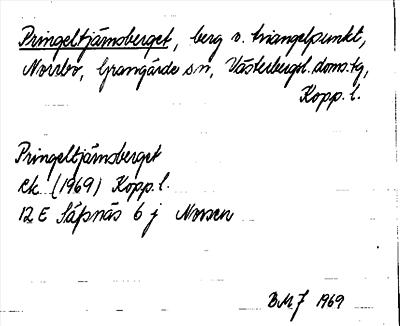 Pringeltjärnsberget, berg o. triangelpunkt,
Norrbo, Grangärde sn, Västerbergsl. doms.tg,
Kopp. l.
Pringeltjärnsberget
Ek. (1969) Kopp. l.
12 E Säfsnäs 6 j Norsen
BMJ 1969